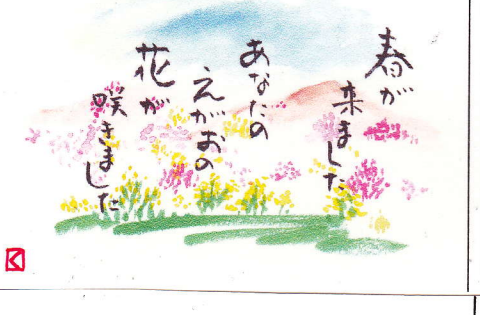 春が
来ました
あなたの
えがおの
花が
咲きました